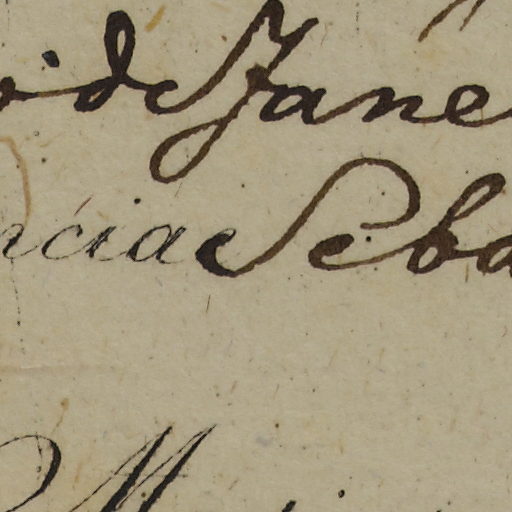 o de Jane
ncia e Seba
M